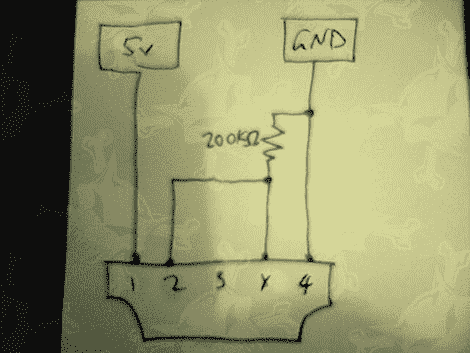 5v
GND
200KΩ
1 2 3 X 4